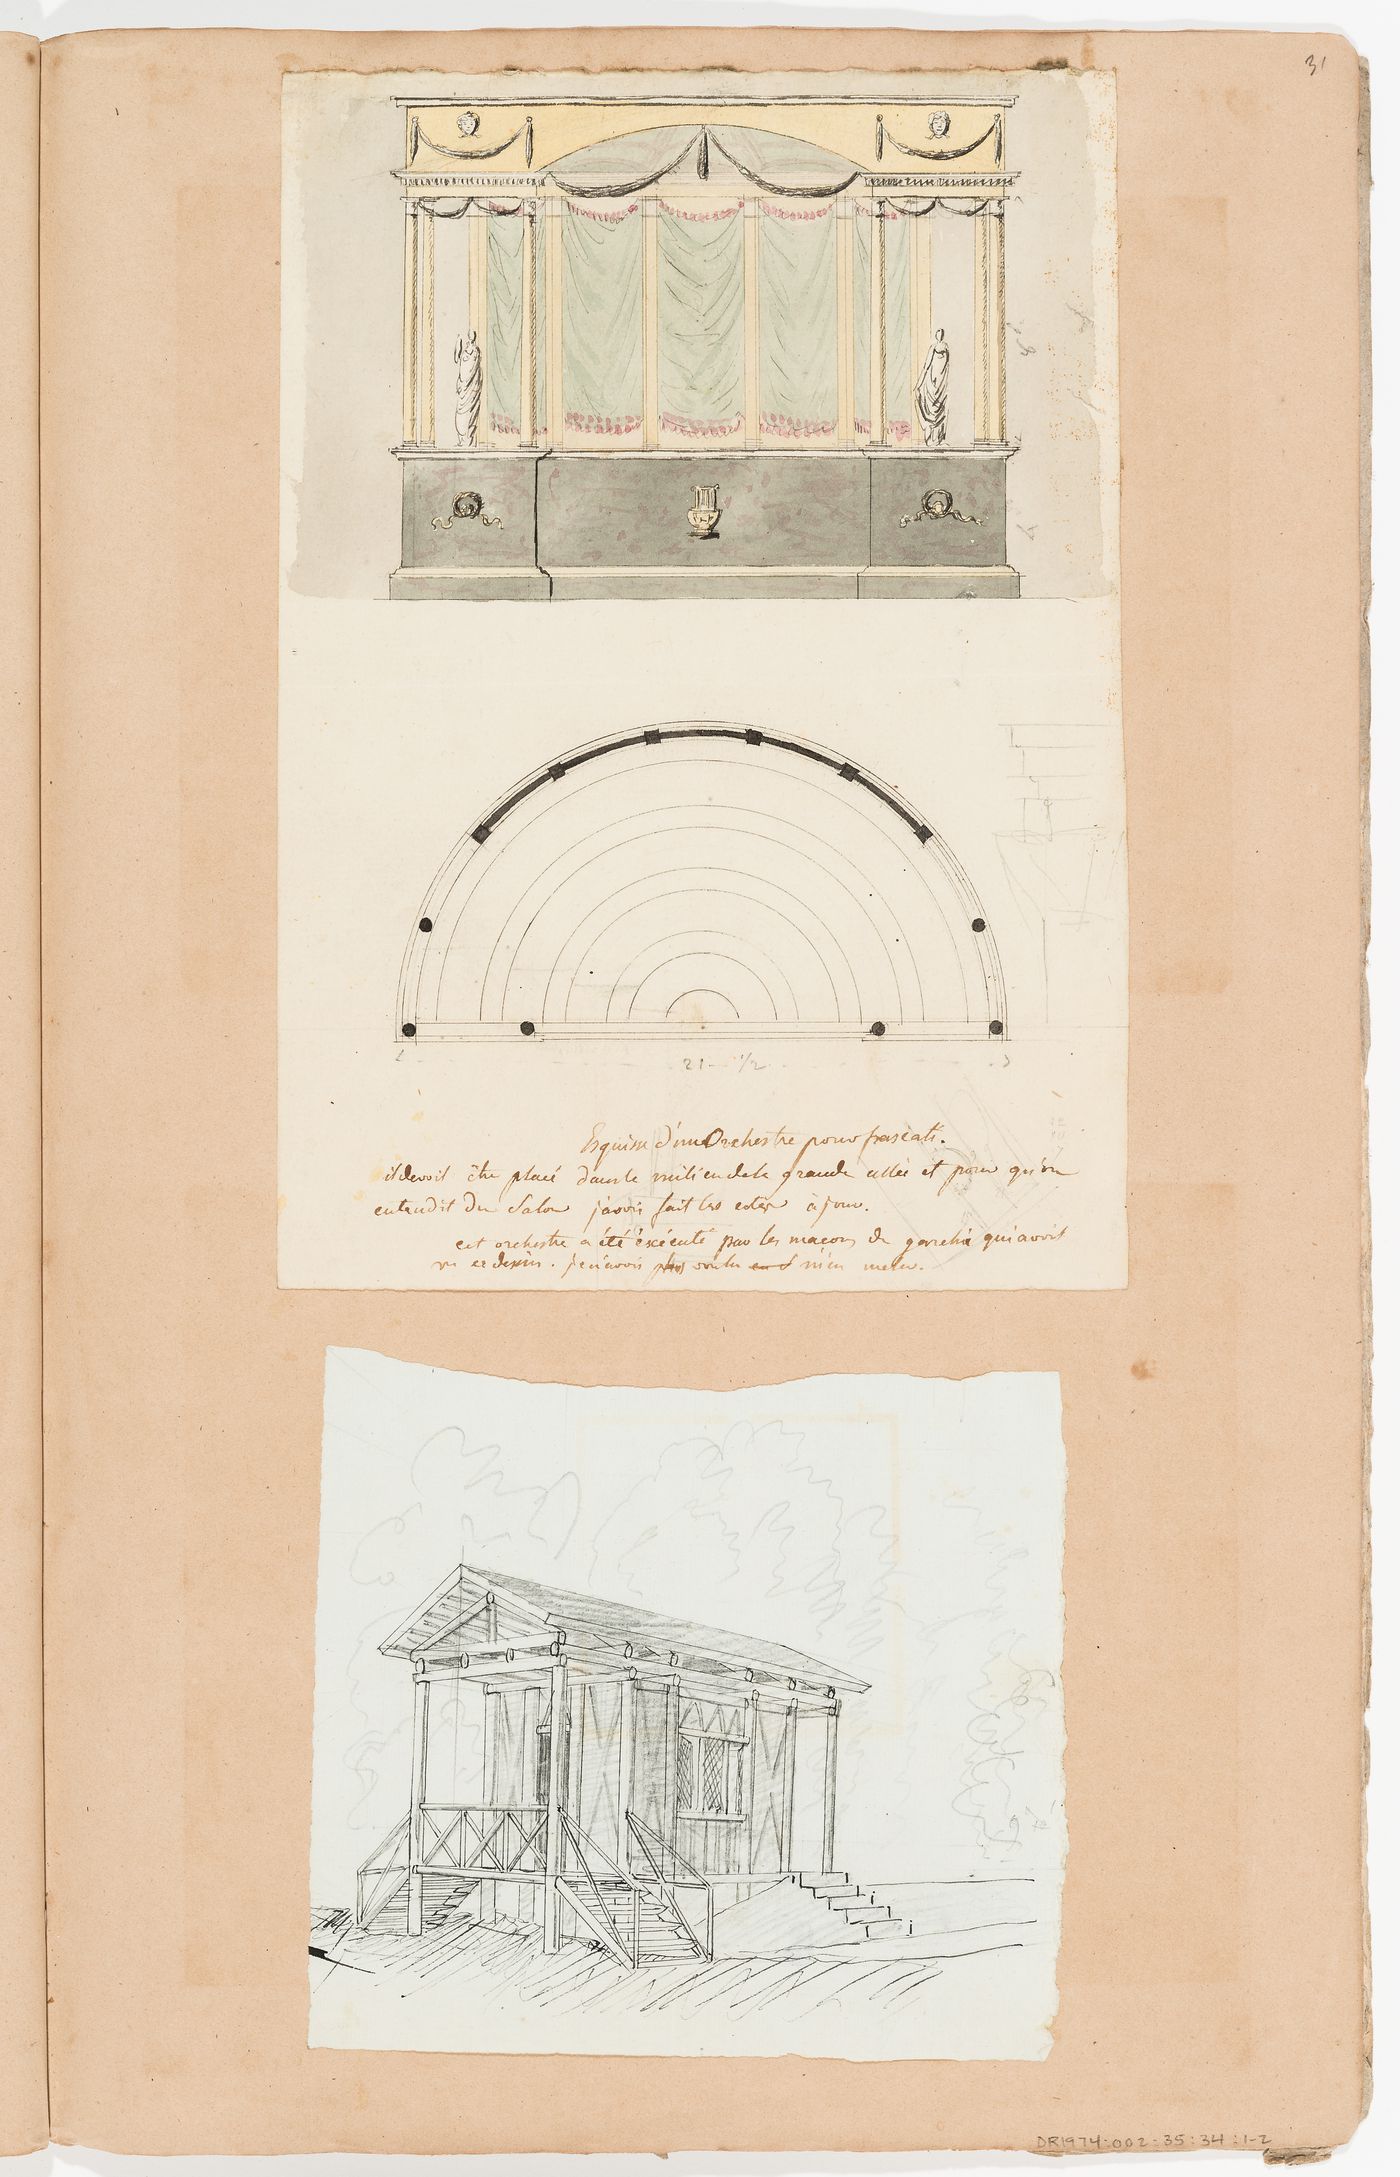 31
21 - 1/2
Esquisse d'un Orchestre pour frascati.
il devoit être placé dans le milieu de la grande allée et pour qu'on
entendit du Salon j'avois fait les cotés à jour.
cet orchestre a été éxécuté par les macons de garchi qui avoit
vu ce dessin. je n'avois plus voulu m'en meler.
DR1974:002:35:34:1-2